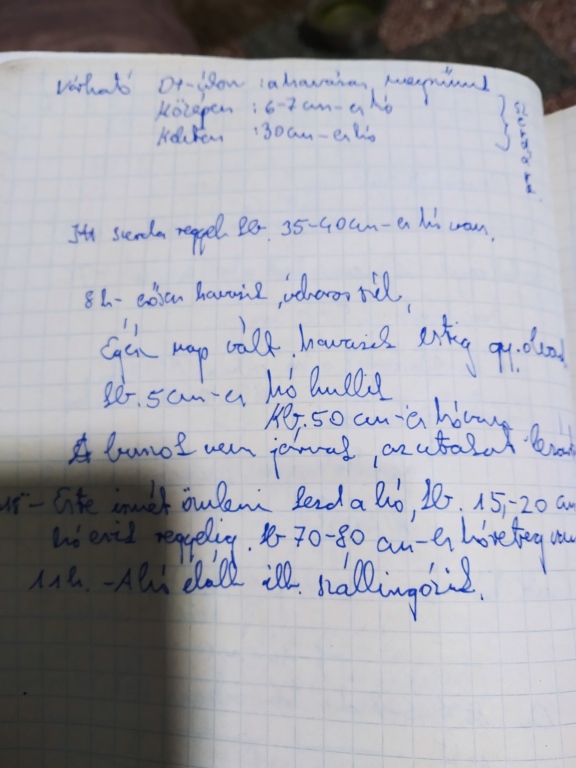 Várható Dt-úlon : a havazás megszűnik
Közepen : 6-7 cm-es hó
Keleten : 30 cm-es hó
Szerdára
Itt szerda reggel kb. 35-40 cm-es hó van.
8h- erősen havazik, viharos szél,
Egész nap vált. havazik estig gy. olvad
kb. 5 cm-es hó hullik
Kb. 50 cm-es hó van
A buszok nem járnak, az utakat
18h- Este ismét ömleni kezd a hó, kb. 15,-20 cm
hó esik reggelig. kb 70-80 cm-es hóréteg van
11h. -A hó eláll ill. szállingózik.